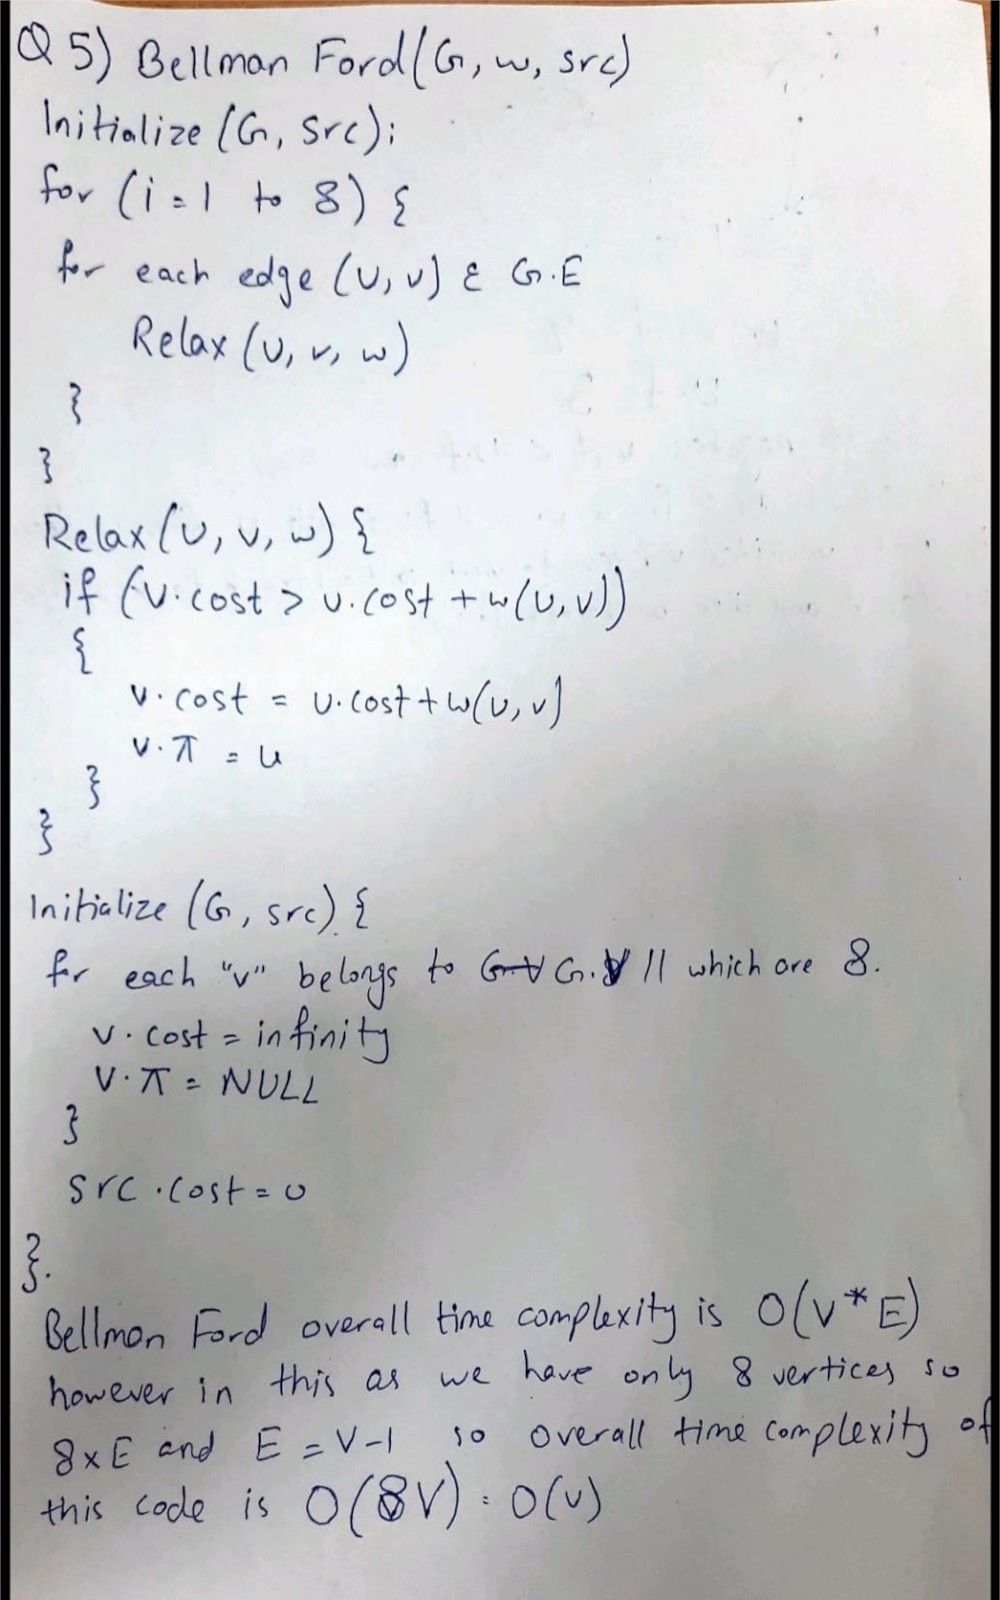 Q 5) Bellman Ford(G, w, src)
Initialize (G, src);
for (i = 1 to 8) {
for each edge (u, v) ε G.E
Relax (u, v, w)
}
}
Relax (u, v, w) {
if (v.cost > u.cost + w(u,v))
{
v.cost = u.cost + w(u,v)
v.π = u
}
}
Initialize (G, src) {
for each "v" belongs to G.V G.V // which are 8.
v.cost = infinity
v.π = NULL
}
src.cost = 0
}.
Bellman Ford overall time complexity is O(V*E)
however in this as we have only 8 vertices so
8xE and E = V-1 so overall time complexity of
this code is O(8V) = O(V)